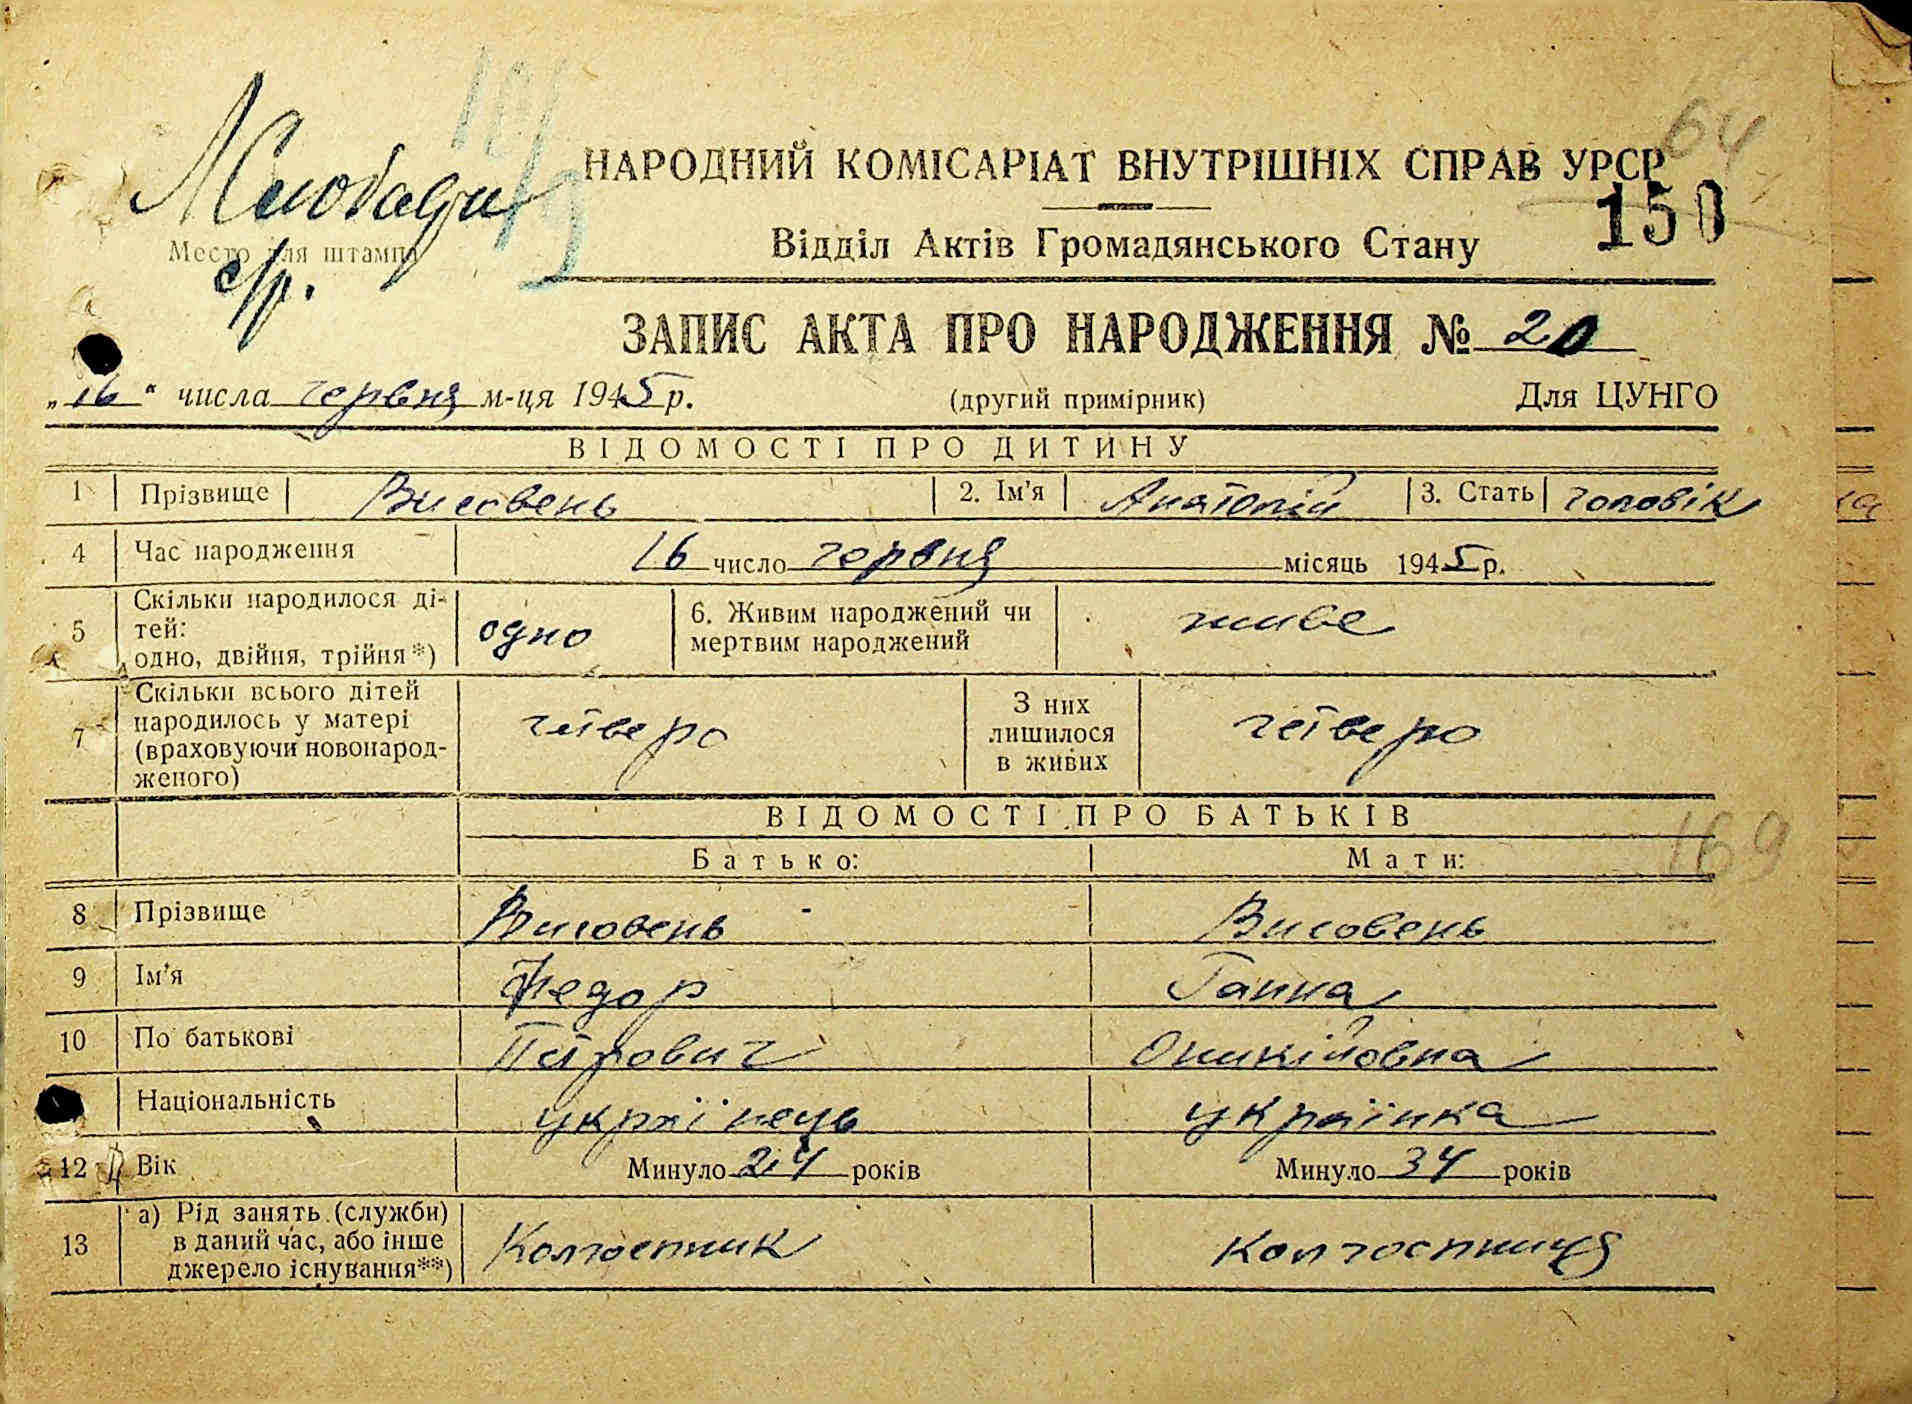 64
НАРОДНИЙ КОМІСАРІАТ ВНУТРІШНІХ СПРАВ УРСР
150
Место для штампа
с/р.
Відділ Актів Громадянського Стану
ЗАПИС АКТА ПРО НАРОДЖЕННЯ № 20
„16“ числа червня м-ця 1945 р. (другий примірник) Для ЦУНГО
ВІДОМОСТІ ПРО ДИТИНУ
1 Прізвище Висовень 2. Ім'я Анатолій 3. Стать чоловік
4 Час народження 16 число червня місяць 1945 р.
5 Скільки народилося дітей: одно, двійня, трійня*) одно 6. Живим народжений чи мертвим народжений живе
7 Скільки всього дітей народилось у матері (враховуючи новонародженого) четверо З них лишилося в живих четверо
ВІДОМОСТІ ПРО БАТЬКІВ
Батько: Мати:
169
8 Прізвище Висовень Висовень
9 Ім'я Федор Ганна
10 По батькові Петрович Оникіївна
Національність українець українка
12 Вік Минуло 24 років Минуло 34 років
13 а) Рід занять (служби) в даний час, або інше джерело існування**) Колгоспник Колгоспниця